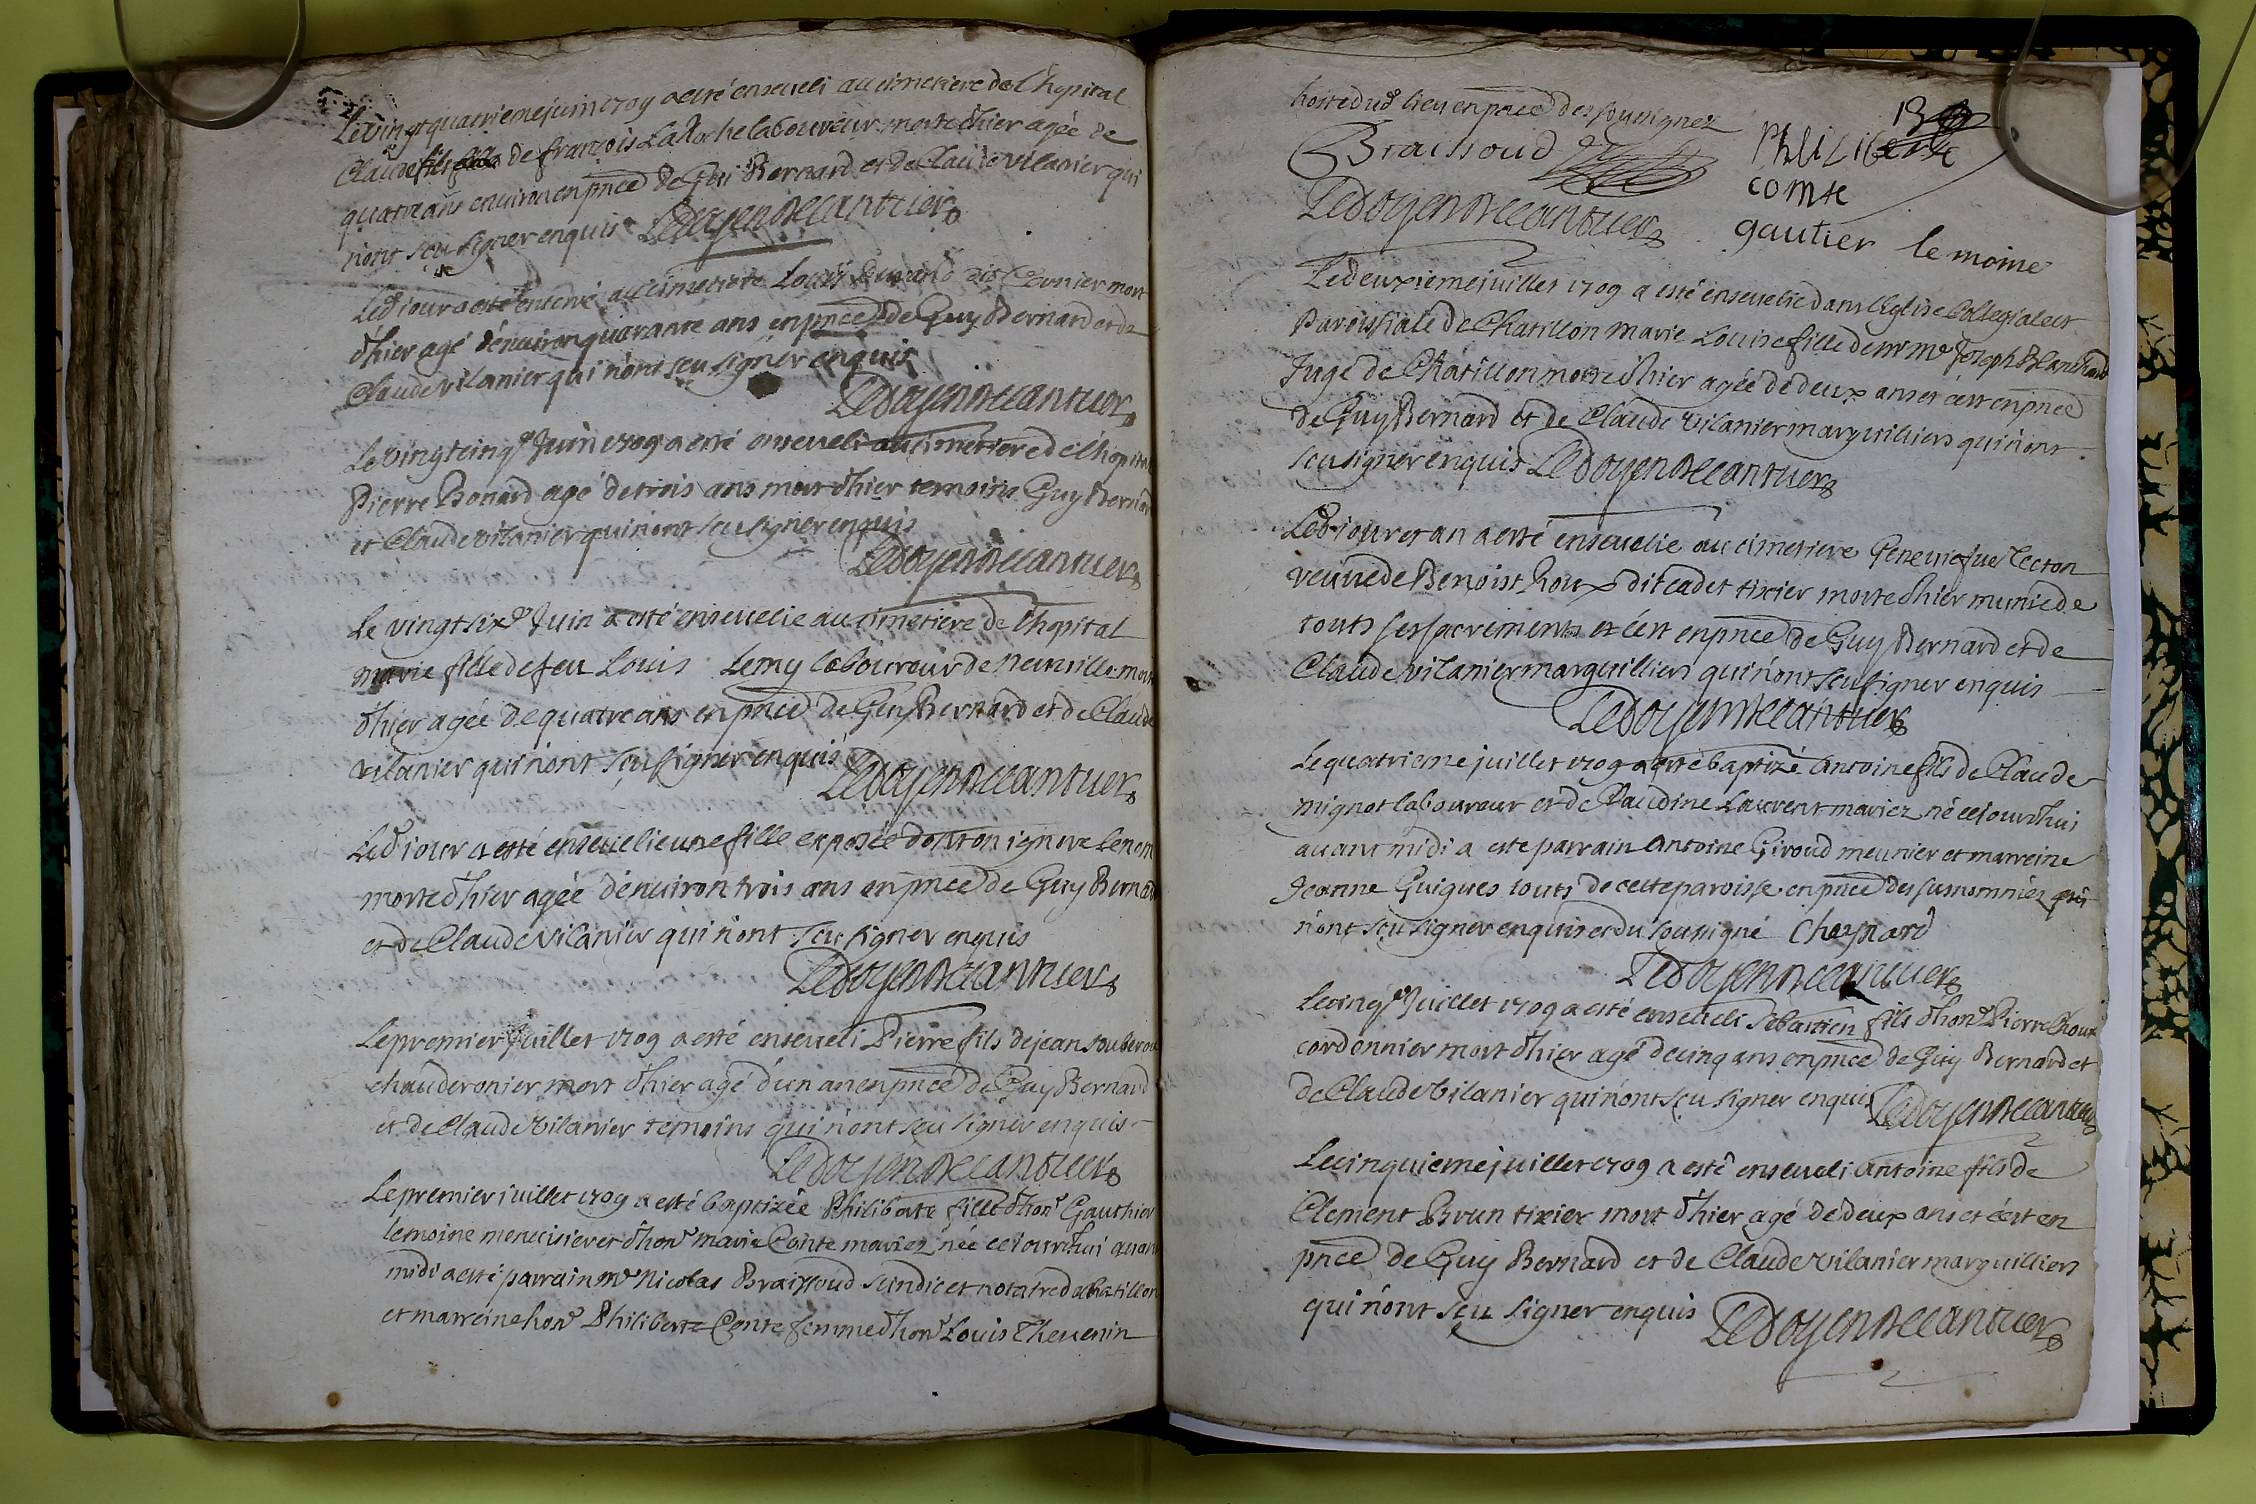 Le vingt quatrieme juin 1709 a esté enseveli au cimetiere de l'hopital
Claude fils de françois LaRoche laboureur morte d'hier agée de
quatre ans environ en pnce de Gui Bernard et de Claude vilanier qui
n'ont sçu signer enquis Ledoyen Recantuer
Led jour a esté enterré au cimetiere Louis Durand dit mort
d'hier agé d'environ quarante ans en pnce de Guy Bernard et de
Claude vilanier qui n'ont sçu signer enquis
Ledoyen Recantuer
Le vingt cinqe Juin 1709 a esté enseveli au cimetiere de l'hopital
Pierre Bonard agé de trois ans mort d'hier temoins Guy Bernard
et Claude vilanier qui n'ont sçu signer enquis
Ledoyen Recantuer
Le vingt sixe Juin a esté ensevelie au cimetiere de l'hopital
marie fille de feu Louis Lemy laboureur de neuville morte
d'hier agée de quatre ans en pnce de Guy Bernard et de Claude
vilanier qui n'ont sçu signer enquis
Ledoyen Recantuer
Led jour a esté ensevelie une fille exposée dont on ignore le nom
morte d'hier agée d'environ trois ans en pnce de Guy Bernard
et de Claude vilanier qui n'ont sçu signer enquis
Ledoyen Recantuer
Le premier Juillet 1709 a esté enseveli Pierre fils de jean
chauderonier mort d'hier agé d'un an en pnce de Guy Bernard
et de Claude Vilanier temoins qui n'ont sçu signer enquis
Ledoyen Recantuer
Le premier juillet 1709 a esté baptizée Philiberte fille d'hone Gauthier
lemoine menuisier et d'hone marie Conte mariez née ce jourd'hui avant
midi a esté parrain me Nicolas Braissoud scindic et notaire de Chatillon
et marreine hone Philiberte Conte femme d'hone Louis Thevenin
hoste dud lieu en pnce des sousignez
Braissoud
Philiberte
comte
Ledoyen Recantuer
gautier le moine
Le deuxieme juillet 1709 a esté ensevelie dans l'Eglise Collegiale et
Paroissiale de Chatillon marie Louise fille de mr me Joseph Blanchard
Juge de Chatillon morte d'hier agée de deux ans et c'est en pnce
de Guy Bernard et de Claude vilanier marguilliers qui n'ont
sçu signer enquis Ledoyen Recantuer
Led jour et an a esté ensevelie au cimetiere Geneviefue Tecton
veuve de Benoist Roux dit cadet tixier morte d'hier munie de
touts ses sacrements et c'est en pnce de Guy Bernard et de
Claude vilanier marguilliers qui n'ont sçu signer enquis
Ledoyen Recantuer
Le quatrieme juillet 1709 a esté baptizé Antoine fils de Claude
mignot laboureur et de Claudine Laurent mariez né ce jourd'hui
avant midi a esté parrain Antoine Giroud meunier et marreine
Jeanne Guigues touts de cette paroisse en pnce des susnommés qui
n'ont sçu signer enquis et du soussigné Chaynard
Ledoyen Recantuer
Le cinqe Juillet 1709 a esté enseveli Sebastien fils d'hone Pierre Choux
cordonnier mort d'hier agé de cinq ans en pnce de Guy Bernard et
de Claude Vilanier qui n'ont sçu signer enquis Ledoyen Recantuer
Le cinquieme juillet 1709 a esté enseveli Antoine fils de
Clement Brun tixier mort d'hier agé de deux ans et c'est en
pnce de Guy Bernard et de Claude vilanier marguilliers
qui n'ont sçu signer enquis Ledoyen Recantuer